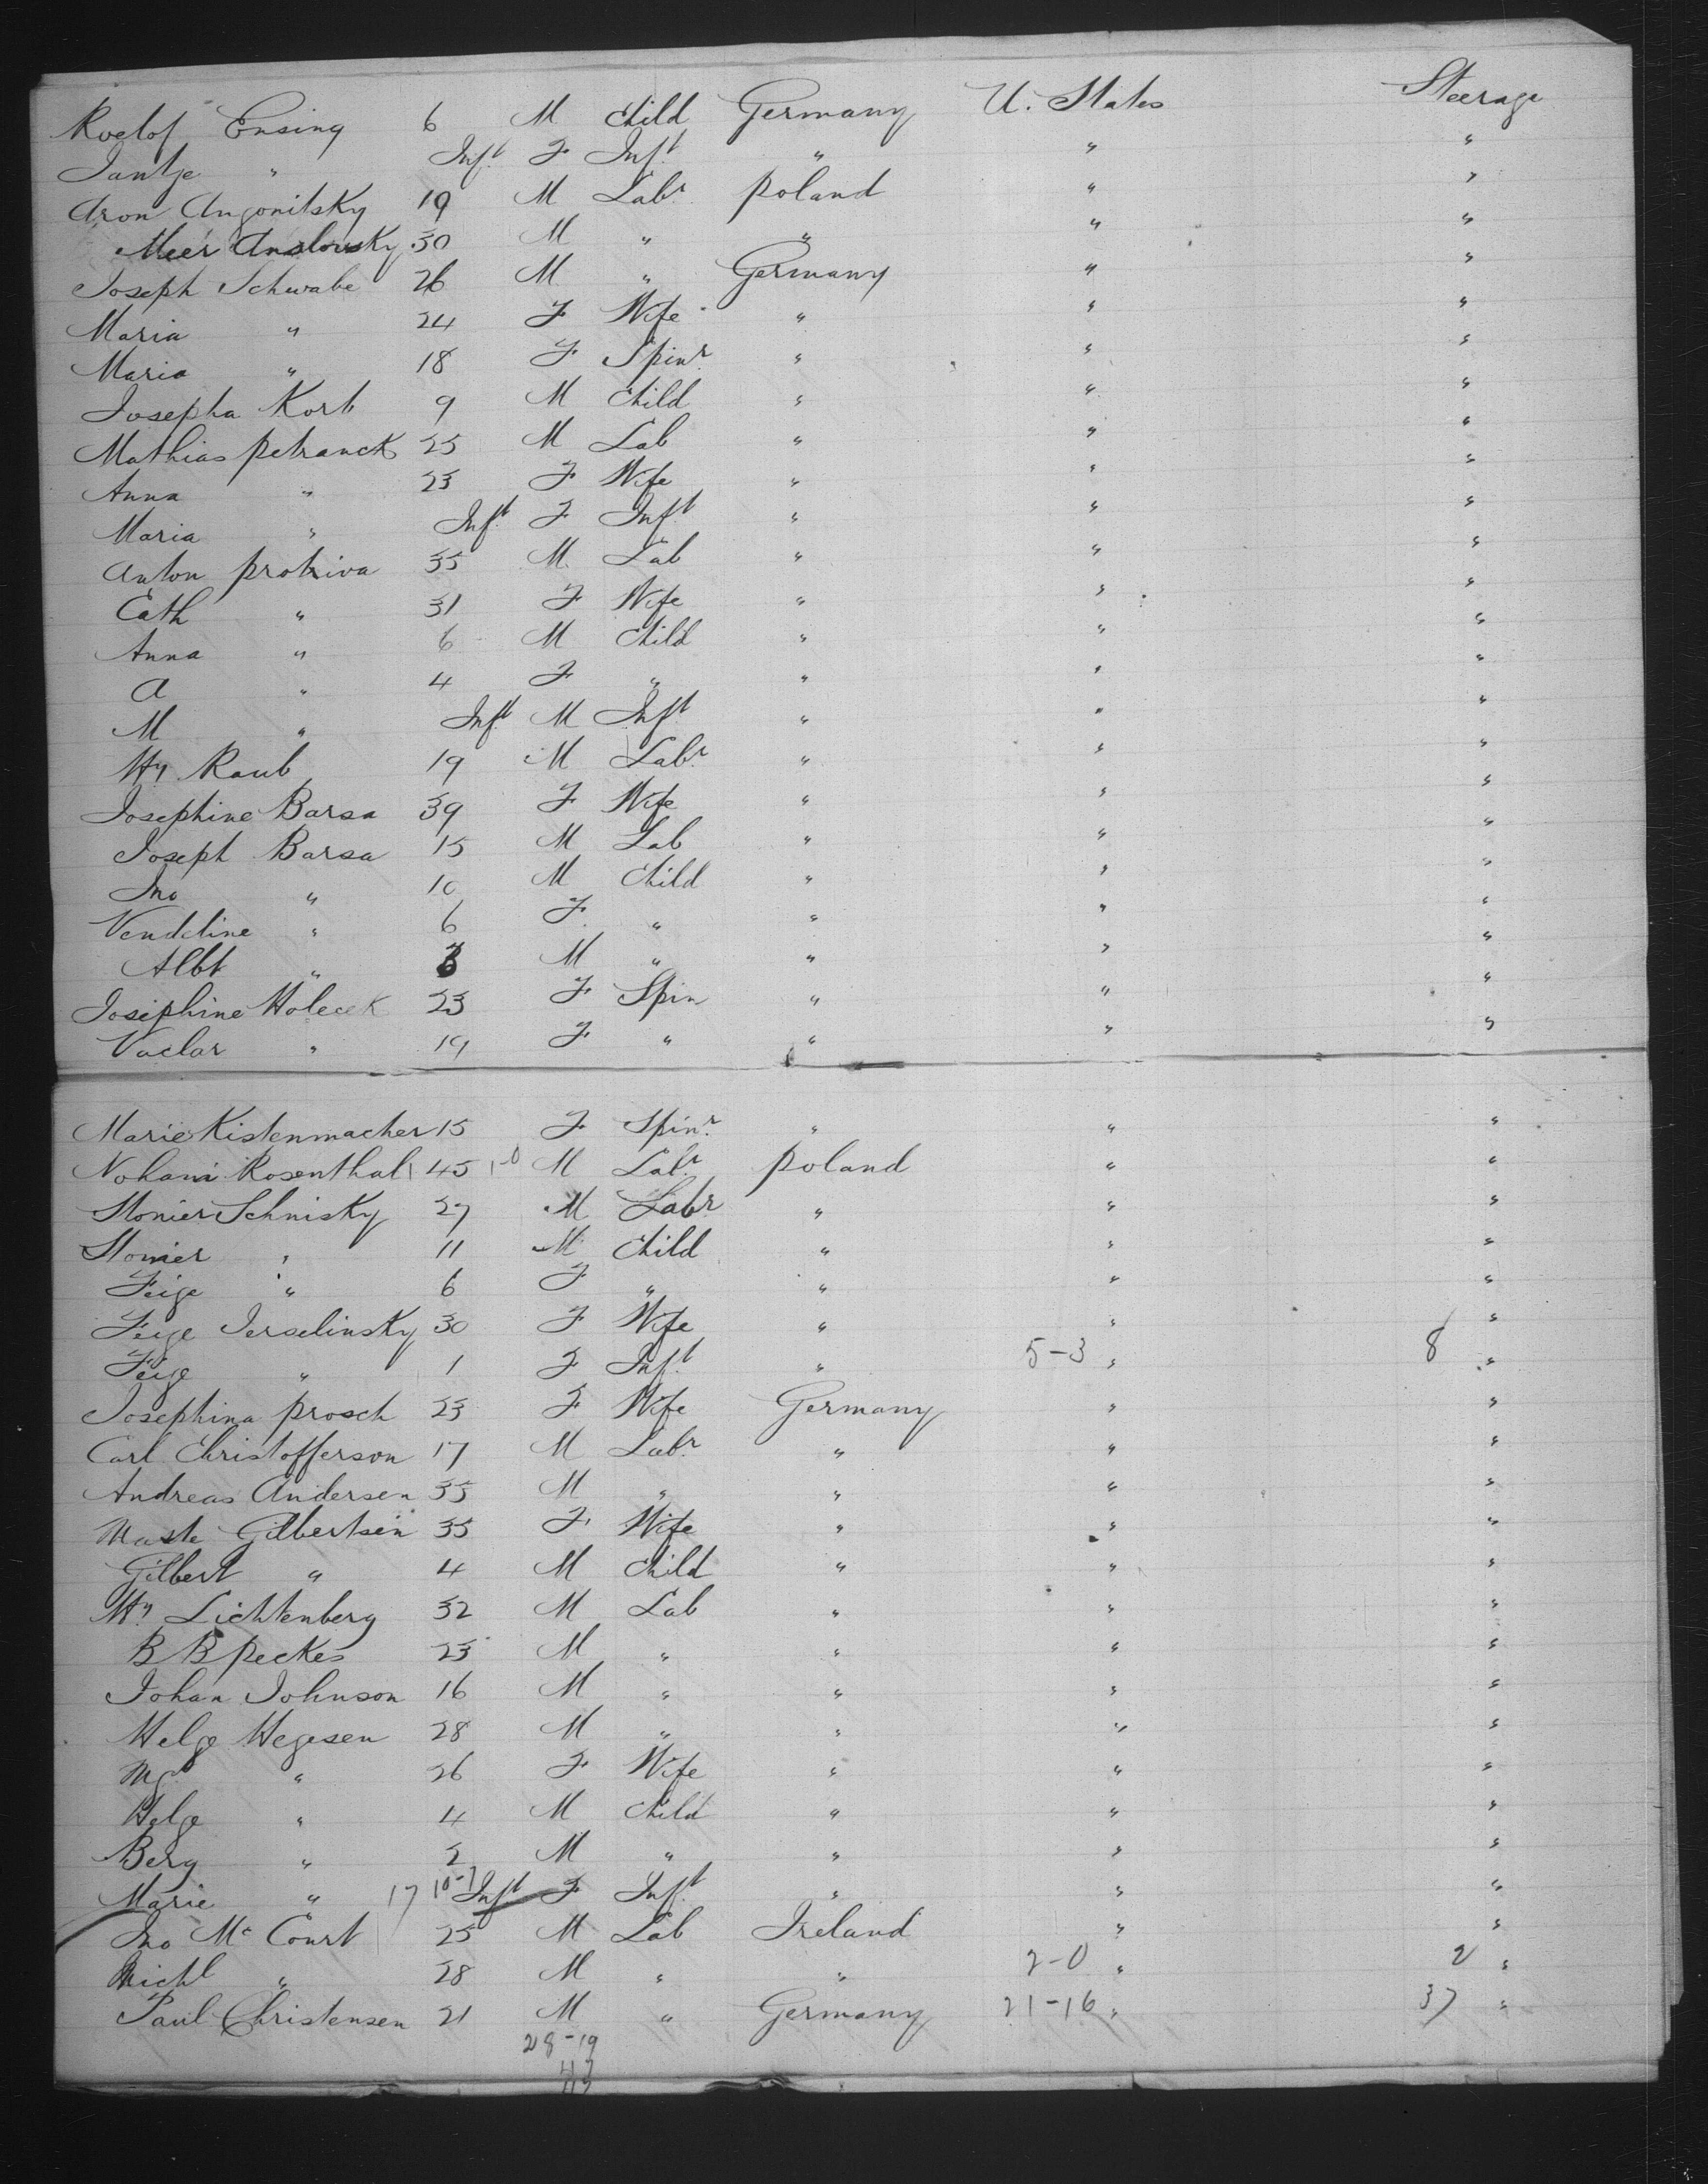 Roelof Ensing 6 M Child Germany U. States Steerage
Jantje " Inft F Inft " " "
Aron Angonitsky 19 M Labr Poland " "
Meer Anslovsky 30 M " " " "
Joseph Schwabe 26 M " Germany " "
Maria " 24 F Wife " " "
Maria " 18 F Spinr " " "
Josepha Korb 9 M Child " " "
Mathias Petranck 25 M Lab " " "
Anna " 23 F Wife " " "
Maria " Inft F Inft " " "
Anton Protriva 35 M Lab " " "
Cath " 31 F Wife " " "
Anna " 6 M Child " " "
A " 4 F " " " "
M " Inft M Inft " " "
Hy Raub 19 M Labr " " "
Josephine Barsa 39 F Wife " " "
Joseph Barsa 15 M Lab " " "
Jno " 10 M Child " " "
Vendeline " 6 F " " " "
Albt " M " " " "
Josephine Holecek 23 F Spin " " "
Vaclar " 19 F " " " "
Marie Kistenmacher 15 F Spinr " " "
Noham Rosenthal 45 1-0 M Labr Poland " "
Monier Schnisky 27 M Labr " " "
Monier " 11 M Child " " "
Feige " 6 F " " " "
Feige Jerselinsky 30 F Wife " " "
Feige " 1 F Inft " 5-3 " 8 "
Josephina Prosch 23 F Wife Germany " "
Carl Christofferson 17 M Labr " " "
Andreas Andersen 35 M " " " "
Maste Gilbertsen 35 F Wife " " "
Gilbert " 4 M Child " " "
Hy Lichtenberg 32 M Lab " " "
B B Peckes 23 M " " " "
Johan Johnson 16 M " " " "
Helge Hegesen 28 M " " " "
Mgt " 26 F Wife " " "
Helge " 4 M Child " " "
Berg " 2 M " " " "
Marie " 17 10-7 Inft F Inft " " "
Jno Mc Court 25 M Lab Ireland " "
Michl " 28 M " " 2-0 " 2 "
Paul Christensen 21 M " Germany 21-16 " 37 "
28-19
47